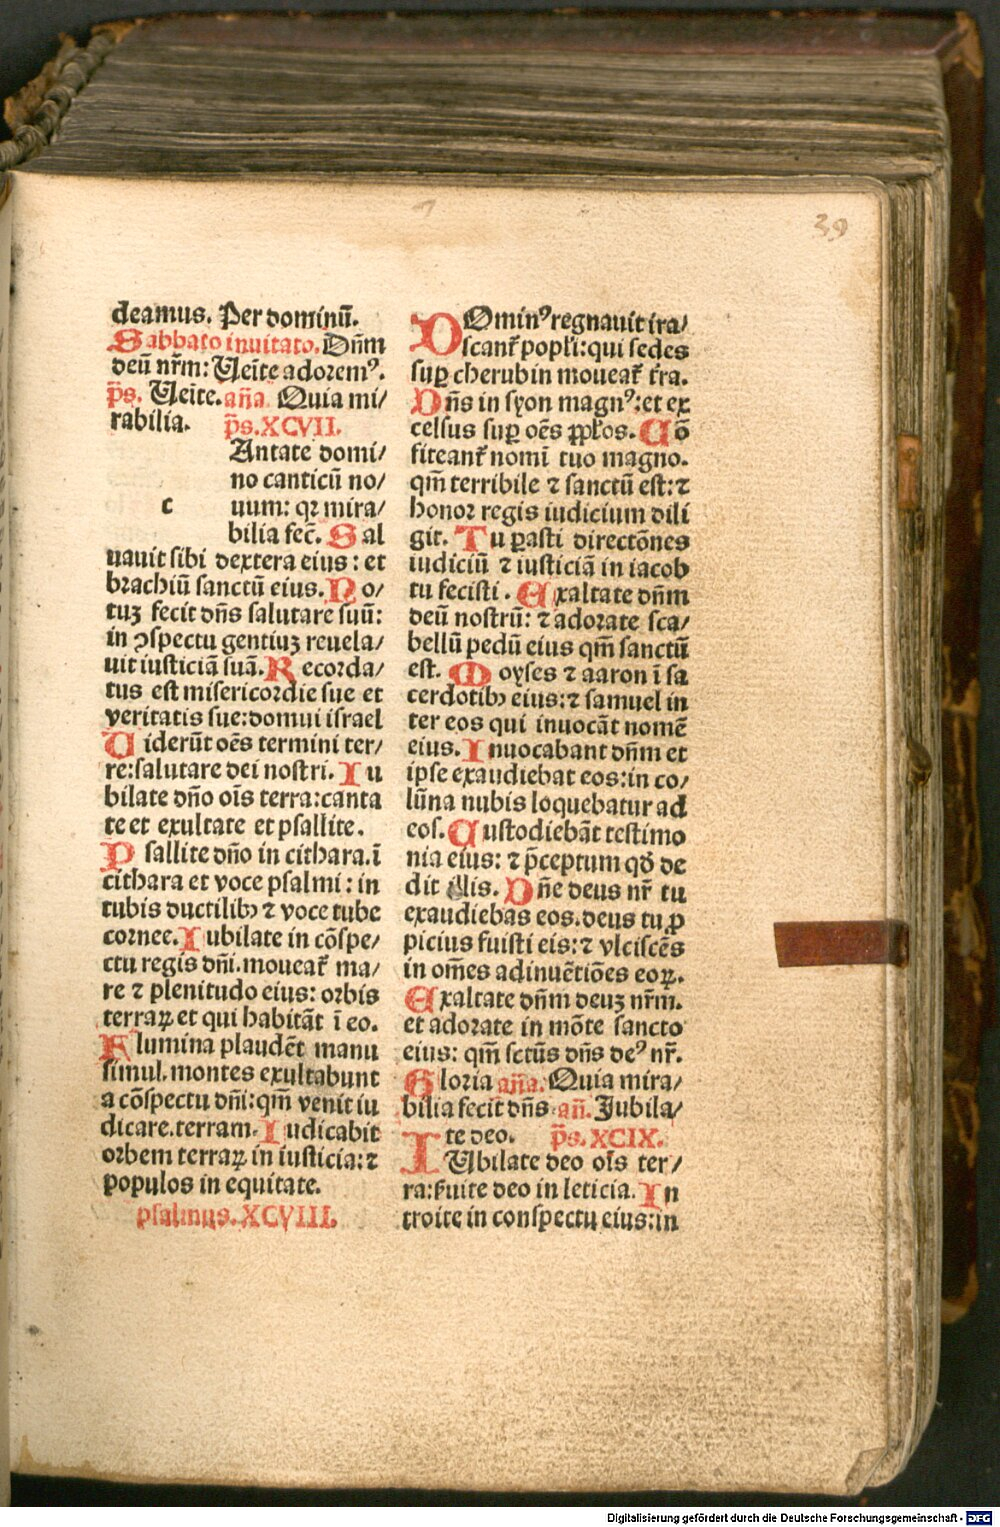 39
deamus. Per dominū.
Sabbato inuitato. Dn̄m
deū nr̄m: Ueīte adoremꝰ.
p̄s. Ueīte. an̄a Quia mi/
rabilia. p̄s. XCVII.
Antate domi/
no canticū no/
c uum: qꝛ mira/
bilia fec̄. Sal
uauit sibi dextera eius: et
brachiū sanctū eius. No/
tuʒ fecit dn̄s salutare suū:
in ꝯspectu gentiuʒ reuela/
uit iusticiā suā. Recorda/
tus est misericordie sue et
veritatis sue: domui israel
Uiderūt oēs termini ter/
re: salutare dei nostri. Iu
bilate dn̄o oīs terra: canta
te et exultate et psallite.
Psallite dn̄o in cithara. ī
cithara et voce psalmi: in
tubis ductilibꝫ ⁊ voce tube
cornee. Iubilate in cōspe/
ctu regis dn̄i. moueat̄ ma/
re ⁊ plenitudo eius: orbis
terraꝝ et qui habitāt ī eo.
Flumina plaudēt manu
simul. montes exultabunt
a cōspectu dn̄i: qm̄ venit iu
dicare. terram. Iudicabit
orbem terraꝝ in iusticia: ⁊
populos in equitate.
psalmus. XCVIII.
DOminꝰ regnauit ira/
scant̄ popl̄i: qui sedes
suꝑ cherubin moueat̄ tr̄a.
Dn̄s in syon magnꝰ: et ex
celsus suꝑ oēs ꝓpl̄os. Cō
fiteant̄ nomī tuo magno.
qm̄ terribile ⁊ sanctū est: ⁊
honor regis iudicium dili
git. Tu ꝑasti directōnes
iudiciū ⁊ iusticiā in iacob
tu fecisti. Exaltate dn̄m
deū nostrū: ⁊ adorate sca/
bellū pedū eius qm̄ sanctū
est. Moyses ⁊ aaron ī sa
cerdotibꝫ eius: ⁊ samuel in
ter eos qui inuocāt nomē
eius. Inuocabant dn̄m et
ipse exaudiebat eos: in co/
lūna nubis loquebatur ad
eos. Custodiebāt testimo
nia eius: ⁊ p̄ceptum qd̄ de
dit illis. Dn̄e deus nr̄ tu
exaudiebas eos. deus tu ꝓ
picius fuisti eis: ⁊ vlciscēs
in om̄es adinuētiōes eoꝝ.
Exaltate dn̄m deuʒ nr̄m.
et adorate in mōte sancto
eius: qm̄ sctūs dn̄s deꝰ nr̄.
Gloria an̄a. Quia mira/
bilia fecit dn̄s an̄. Jubila/
te deo. p̄s. XCIX.
IUbilate deo oīs ter/
ra: s̄uite deo in leticia. In
troite in conspectu eius: in
Digitalisierung gefördert durch die Deutsche Forschungsgemeinschaft - DFG